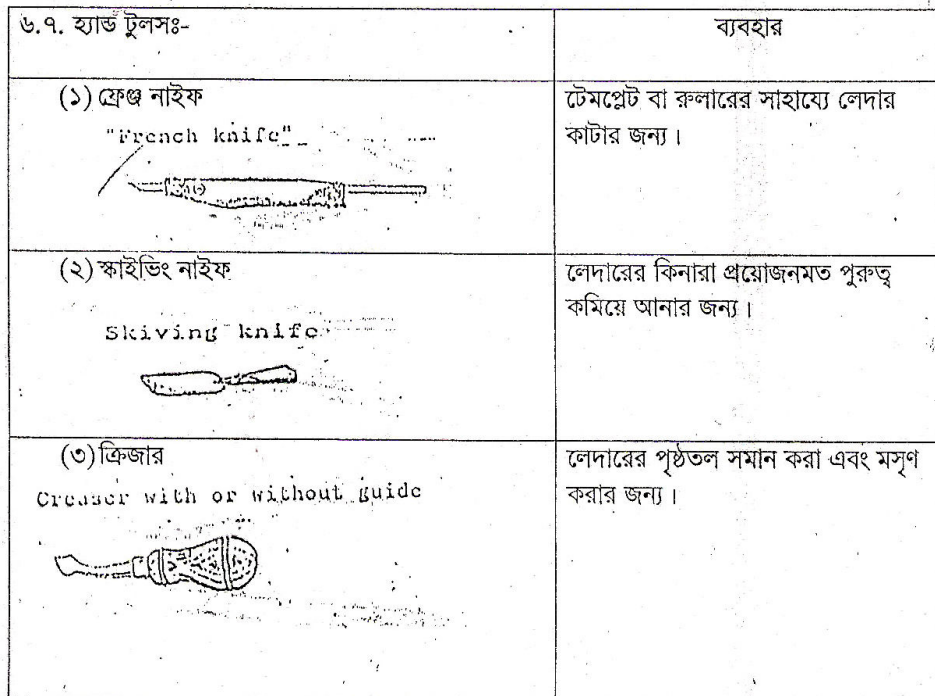 ৬.৭. হ্যান্ড টুলসঃ-
ব্যবহার
(১) ফ্রেঞ্জ নাইফ
"French knife"
টেমপ্লেট বা রুলারের সাহায্যে লেদার
কাটার জন্য।
(২) স্কাইভিং নাইফ
Skiving knife
লেদারের কিনারা প্রয়োজনমত পুরুত্ব
কমিয়ে আনার জন্য।
(৩) ক্রিজার
Creaser with or without guide
লেদারের পৃষ্ঠতল সমান করা এবং মসৃণ
করার জন্য।